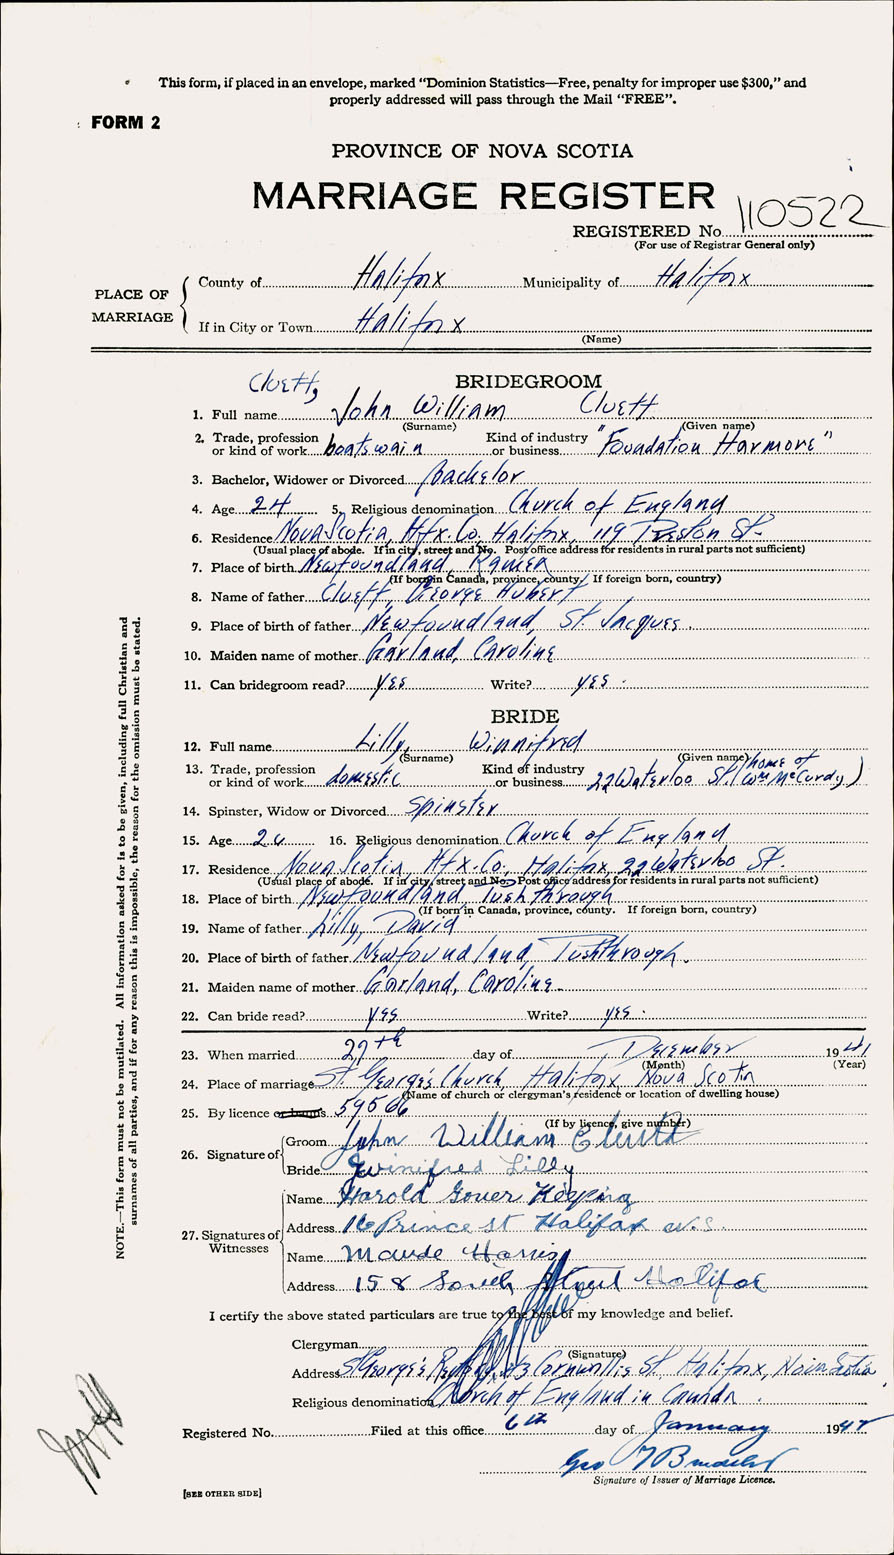 This form, if placed in an envelope, marked “Dominion Statistics—Free, penalty for improper use $300,” and
properly addressed will pass through the Mail “FREE”.
FORM 2
PROVINCE OF NOVA SCOTIA
MARRIAGE REGISTER
REGISTERED No. 110522
(For use of Registrar General only)
PLACE OF MARRIAGE
County of Halifax Municipality of Halifax
If in City or Town Halifax
(Name)
Cluett, BRIDEGROOM
1. Full name John William Cluett
(Surname) (Given name)
2. Trade, profession or kind of work boatswain Kind of industry or business "Foundation Harmore"
3. Bachelor, Widower or Divorced Bachelor
4. Age 24 5. Religious denomination Church of England
6. Residence Nova Scotia, Hfx. Co. Halifax, 119 Preston St.
(Usual place of abode. If in city, street and No. Post office address for residents in rural parts not sufficient)
7. Place of birth Newfoundland, Ramea
(If born in Canada, province, county. If foreign born, country)
8. Name of father Cluett, George Hubert
9. Place of birth of father Newfoundland, St. Jacques.
10. Maiden name of mother Garland, Caroline
11. Can bridegroom read? yes Write? yes.
BRIDE
12. Full name Lilly, Winnifred
(Surname) (Given name)
13. Trade, profession or kind of work domestic Kind of industry or business 22 Waterloo St. (home of Wm McCurdy)
14. Spinster, Widow or Divorced Spinster
15. Age 26 16. Religious denomination Church of England
17. Residence Nova Scotia, Hfx. Co., Halifax, 22 Waterloo St.
(Usual place of abode. If in city, street and No. Post office address for residents in rural parts not sufficient)
18. Place of birth Newfoundland, Pushthrough
(If born in Canada, province, county. If foreign born, country)
19. Name of father Lilly, David
20. Place of birth of father Newfoundland, Pushthrough.
21. Maiden name of mother Garland, Caroline.
22. Can bride read? yes Write? yes.
23. When married 27th day of December 1941
(Month) (Year)
24. Place of marriage St. George's Church, Halifax, Nova Scotia
(Name of church or clergyman's residence or location of dwelling house)
25. By licence or banns 59566
(If by licence, give number)
26. Signature of Groom John William Cluett
Bride Winifred Lilly
27. Signatures of Witnesses
Name Harold Keeping
Address 16 Prince st Halifax N.S.
Name Maude Harris
Address 158 South Street Halifax
I certify the above stated particulars are true to the best of my knowledge and belief.
Clergyman
(Signature)
Address St George's Rectory, Cornwallis St. Halifax, Nova Scotia
Religious denomination Church of England in Canada.
Registered No. Filed at this office 6th day of January 1942
Geo
Signature of Issuer of Marriage Licence.
[SEE OTHER SIDE]
NOTE.—This form must not be mutilated. All information asked for is to be given, including full Christian and
surnames of all parties, and if for any reason this is impossible, the reason for the omission must be stated.